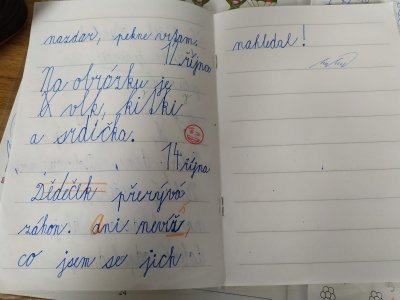 nazdar, pekne vržam.
12 října
Na obrázku je
vlk, kitki
a srdíčka.
14 října
Dědeček přerývá
záhon. ani neviš
co jsem se jich
nahledal!